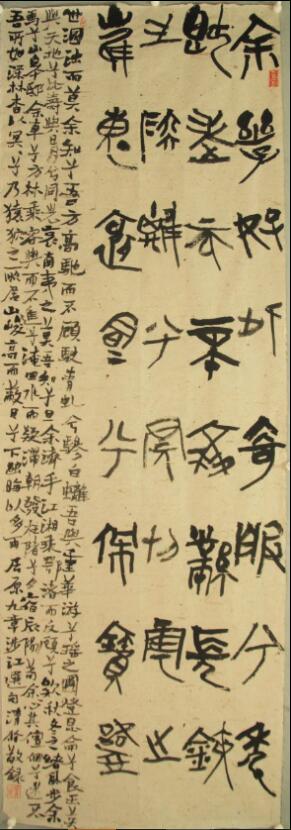 余幼好此奇服兮年
既老而不衰帶長鋏
之陸離兮冠切雲之
崔嵬被明月兮佩寶璐
世溷濁而莫余知兮吾方高馳而不顧駕青虬兮驂白螭吾與重華遊兮瑤之圃登崑崙兮食玉英
與天地兮比壽與日月兮同光哀南夷之莫吾知兮旦余濟乎江湘乘鄂渚而反顧兮欸秋冬之緒風步余
馬兮山皋邸余車兮方林乘容與而不進兮淹回水而疑滯朝發枉陼兮夕宿辰陽苟余心其儃佪兮迷不
吾所如深林杳以冥冥兮乃猿狖之所居山峻高而蔽日兮下幽晦以多雨屈原九章涉江選句清敬錄